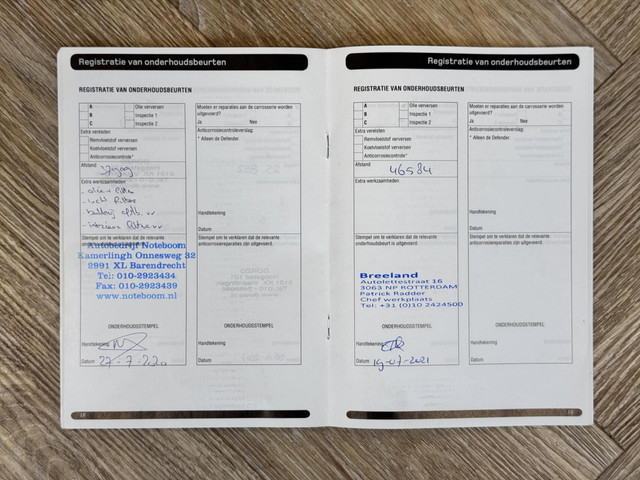 Registratie van onderhoudsbeurten
REGISTRATIE VAN ONDERHOUDSBEURTEN
A Olie verversen
B Inspectie 1
C Inspectie 2
Extra vereisten
Remvloeistof verversen
Koelvloeistof verversen
Anticorrosiecontrole*
Afstand
Extra werkzaamheden
Stempel om te verklaren dat de relevante
onderhoudsbeurt is uitgevoerd.
Autobedrijf Noteboom
Kamerlingh Onnesweg 32
2991 XL Barendrecht
Tel: 010-2923434
Fax: 010-2923439
www.noteboom.nl
ONDERHOUDSSTEMPEL
Handtekening
Datum 27-7-2020
Moeten er reparaties aan de carrosserie worden
uitgevoerd?
Ja Nee
Anticorrosiecontroleverslag:
* Alleen de Defender.
Handtekening
Datum
Stempel om te verklaren dat de relevante
anticorrosiereparaties zijn uitgevoerd.
ONDERHOUDSSTEMPEL
Handtekening
Datum
18
Registratie van onderhoudsbeurten
REGISTRATIE VAN ONDERHOUDSBEURTEN
A Olie verversen
B Inspectie 1
C Inspectie 2
Extra vereisten
Remvloeistof verversen
Koelvloeistof verversen
Anticorrosiecontrole*
Afstand 46584
Extra werkzaamheden
Stempel om te verklaren dat de relevante
onderhoudsbeurt is uitgevoerd.
Breeland
Autolettestraat 16
3063 NP ROTTERDAM
Patrick Radder
Chef werkplaats
Tel: +31 (0)10 2424500
ONDERHOUDSSTEMPEL
Handtekening
Datum 19-07-2021
Moeten er reparaties aan de carrosserie worden
uitgevoerd?
Ja Nee
Anticorrosiecontroleverslag:
* Alleen de Defender.
Handtekening
Datum
Stempel om te verklaren dat de relevante
anticorrosiereparaties zijn uitgevoerd.
ONDERHOUDSSTEMPEL
Handtekening
Datum